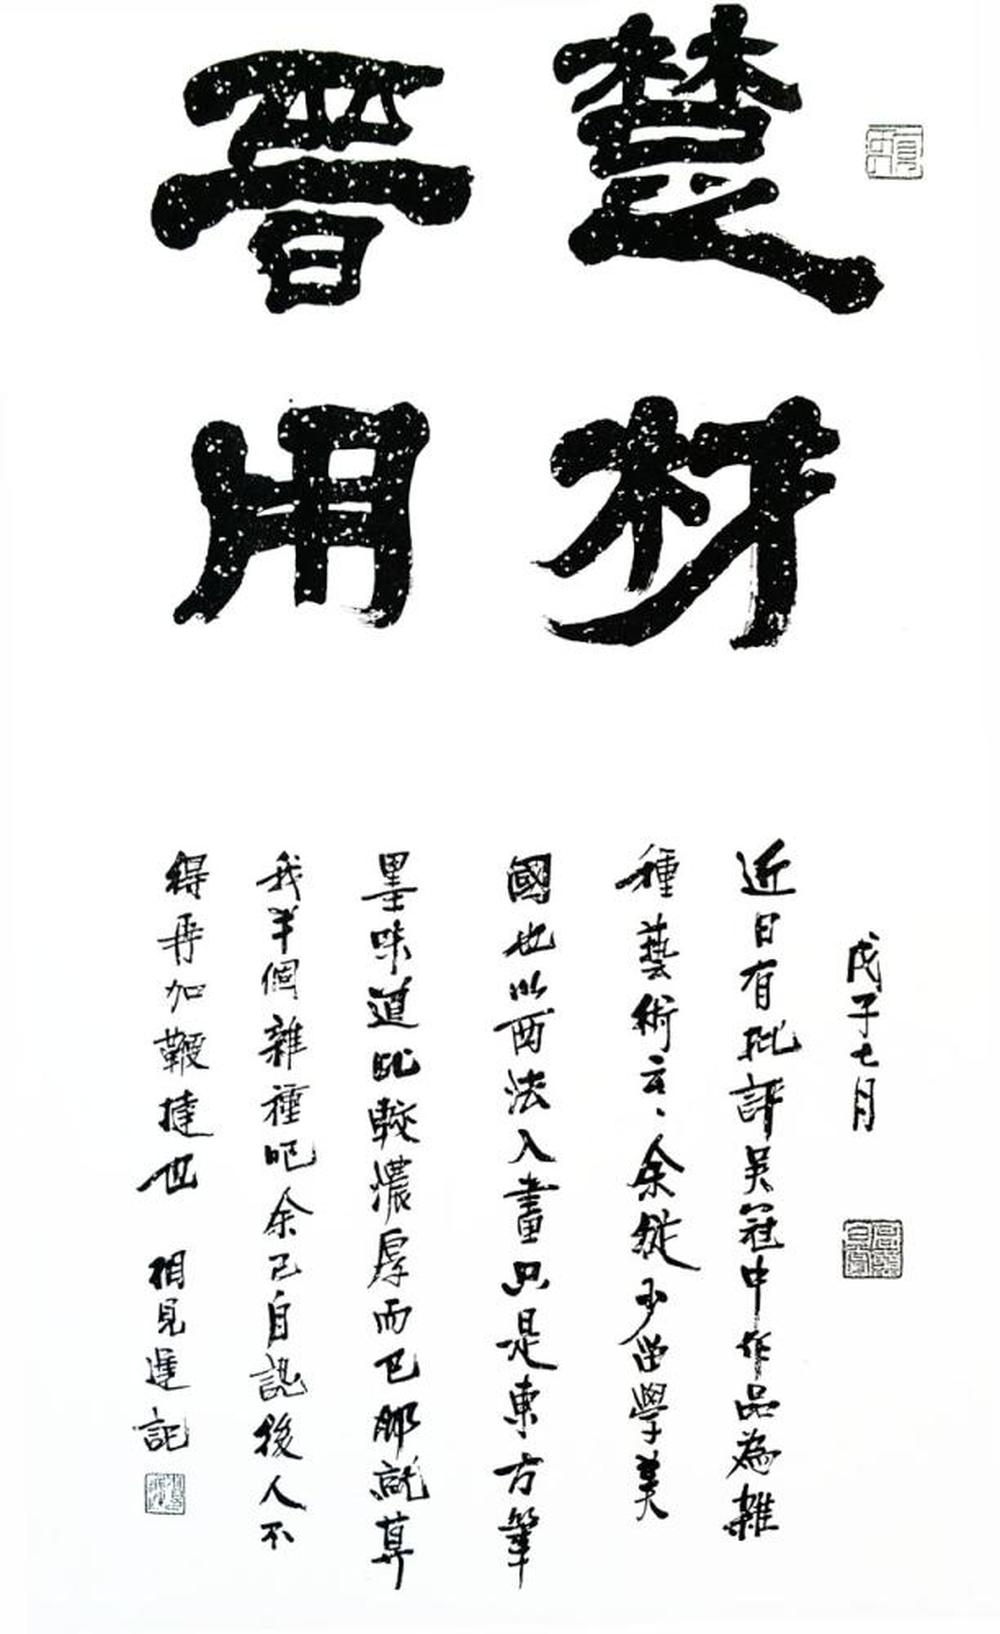 楚材
晉用
戊子七月
近日有批評吴冠中作品為雜
種藝術云云余從少留學美
國也以西法入畫只是東方筆
墨味道比較濃厚而已那就算
我半個雜種吧余已自認後人不
得再加鞭撻也 相見遲記